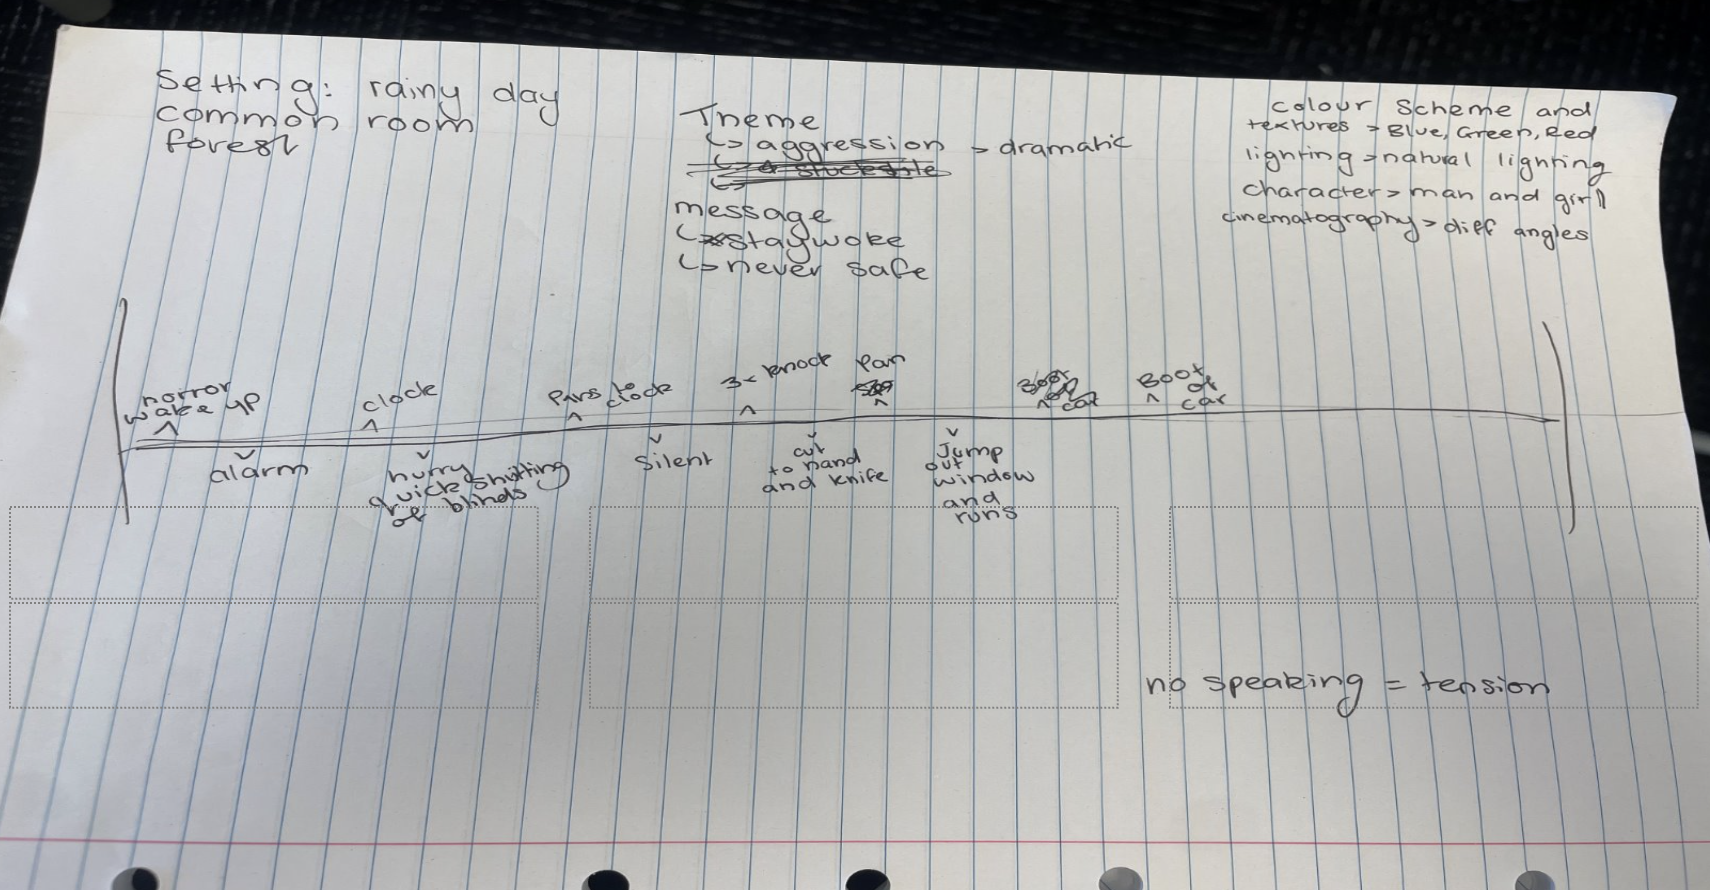 Setting: rainy day
common room
forest
Theme
↳ aggression > dramatic
message
↳ stay woke
↳ never safe
colour scheme and
textures > Blue, Green, Red
lighting > natural lighting
character > man and girl
cinematography > diff angles
horror
wake up
alarm
clock
hurry
quick shutting
of blinds
Pans to
clock
silent
3x knock
cut
to hand
and knife
Pan
Jump
out
window
and
runs
Boot
of
car
no speaking = tension